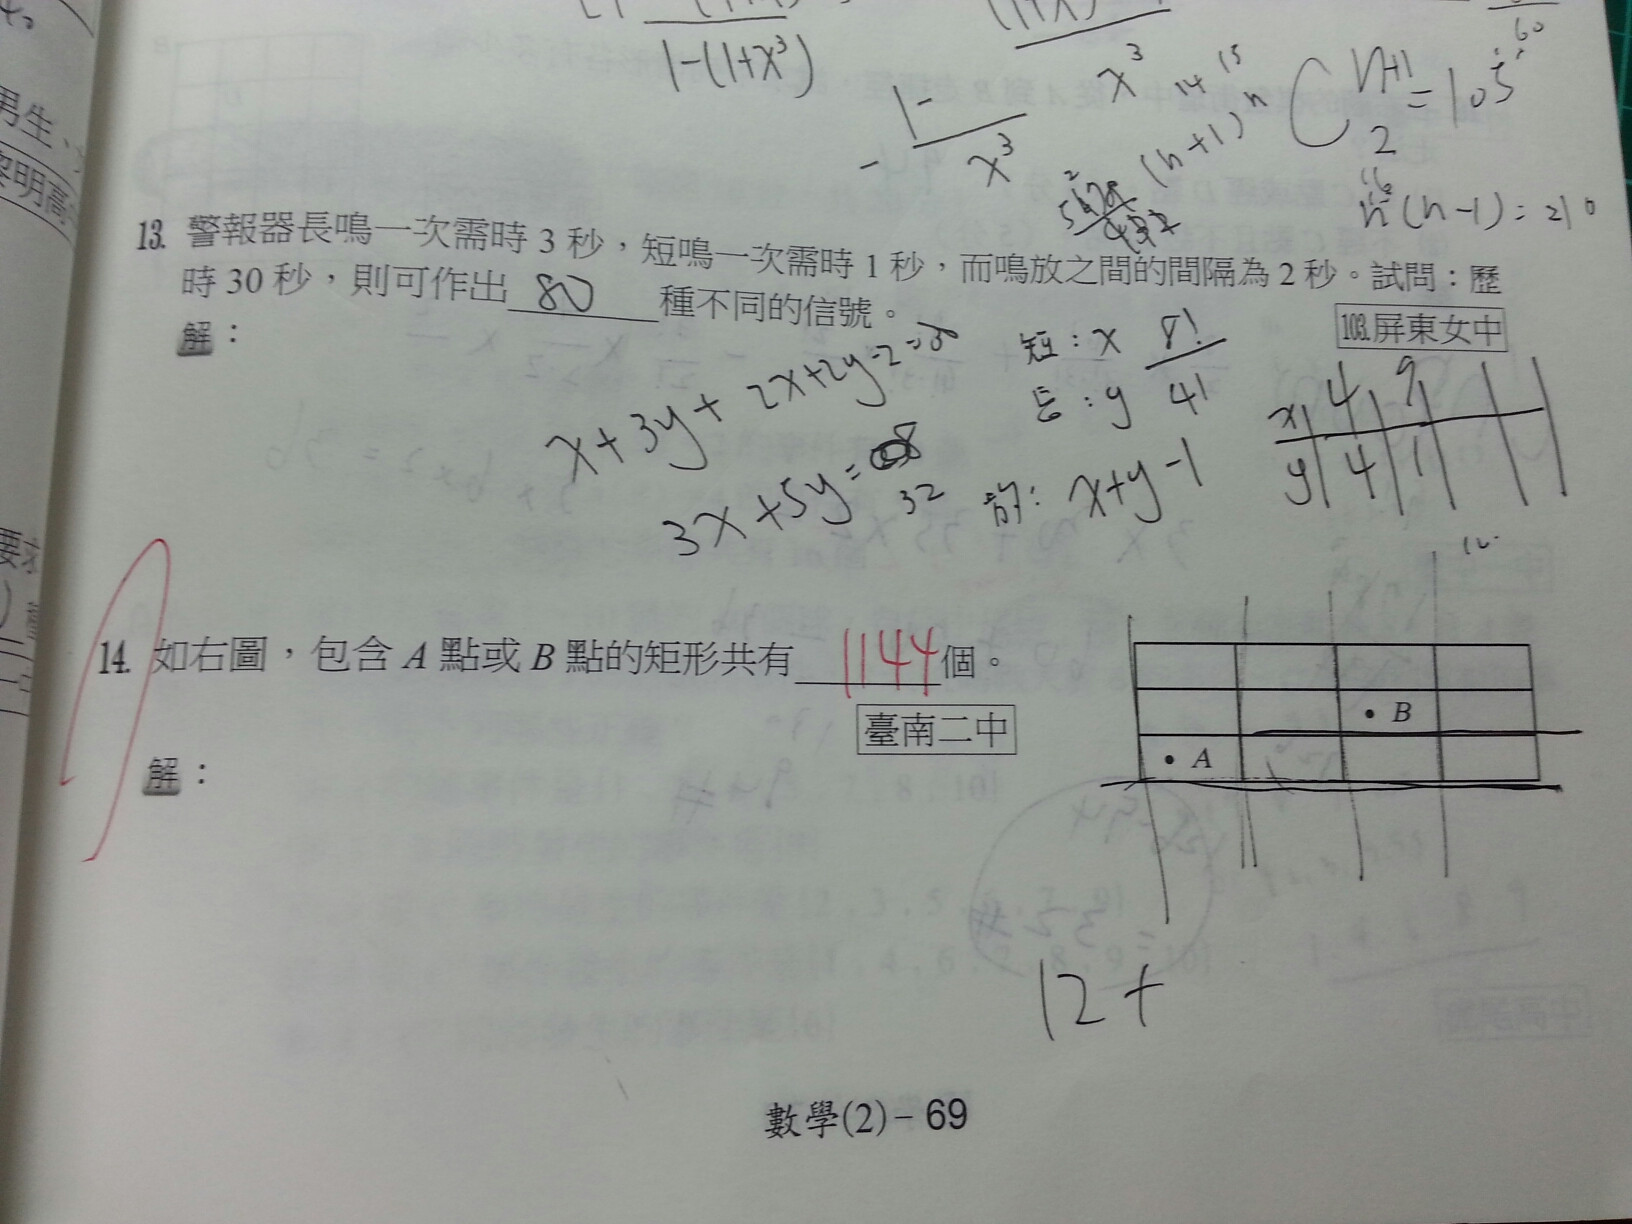 1-(1+x³)
x³
1-
- x³
14 15
(n+1) n
C n+1 2 = 105
n(n-1)=210
男生、
黎明高
13. 警報器長鳴一次需時 3 秒，短鳴一次需時 1 秒，而鳴放之間的間隔為 2 秒。試問：歷
時 30 秒，則可作出 80 種不同的信號。
103.屏東女中
解：
x+3y+2x+2y-2=30
3x+5y=
32
短：x
長：y
8!
4!
x+y-1
x 4 9
y 4 1
要求
14. 如右圖，包含 A 點或 B 點的矩形共有 1144 個。
臺南二中
B
A
解：
12+
數學(2)－69